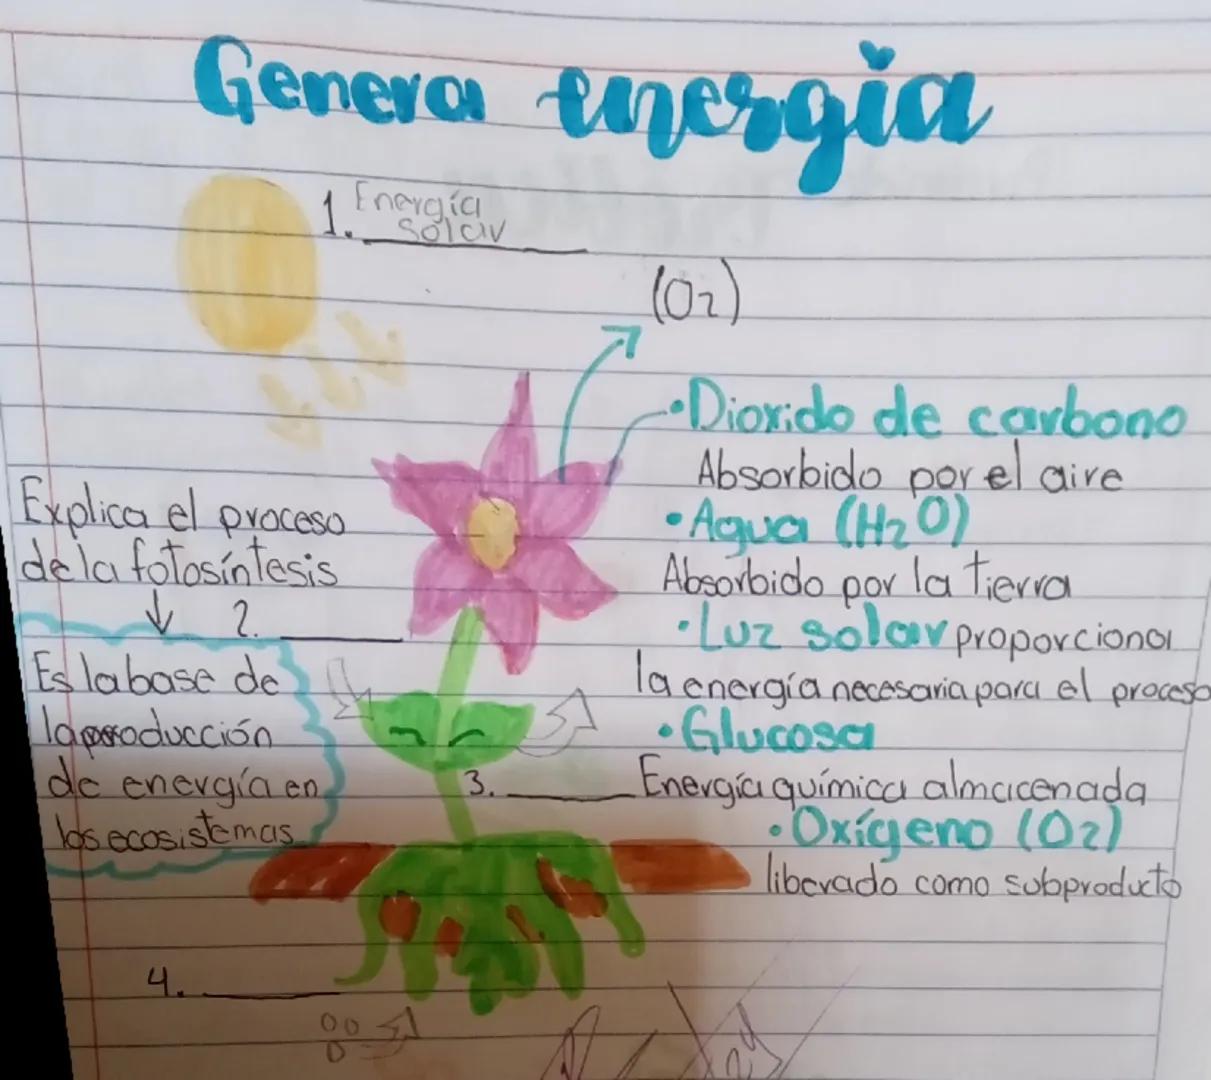 Genera energia
1. Energía
solar
(O2)
• Dioxido de carbono
Absorbido por el aire
• Agua (H2O)
Absorbido por la tierra
• Luz solar proporciona
la energía necesaria para el proceso
• Glucosa
Energía química almacenada
• Oxígeno (O2)
liberado como subproducto
Explica el proceso
de la fotosíntesis
2.
Es la base de
la producción
de energía en
los ecosistemas
3.
4.